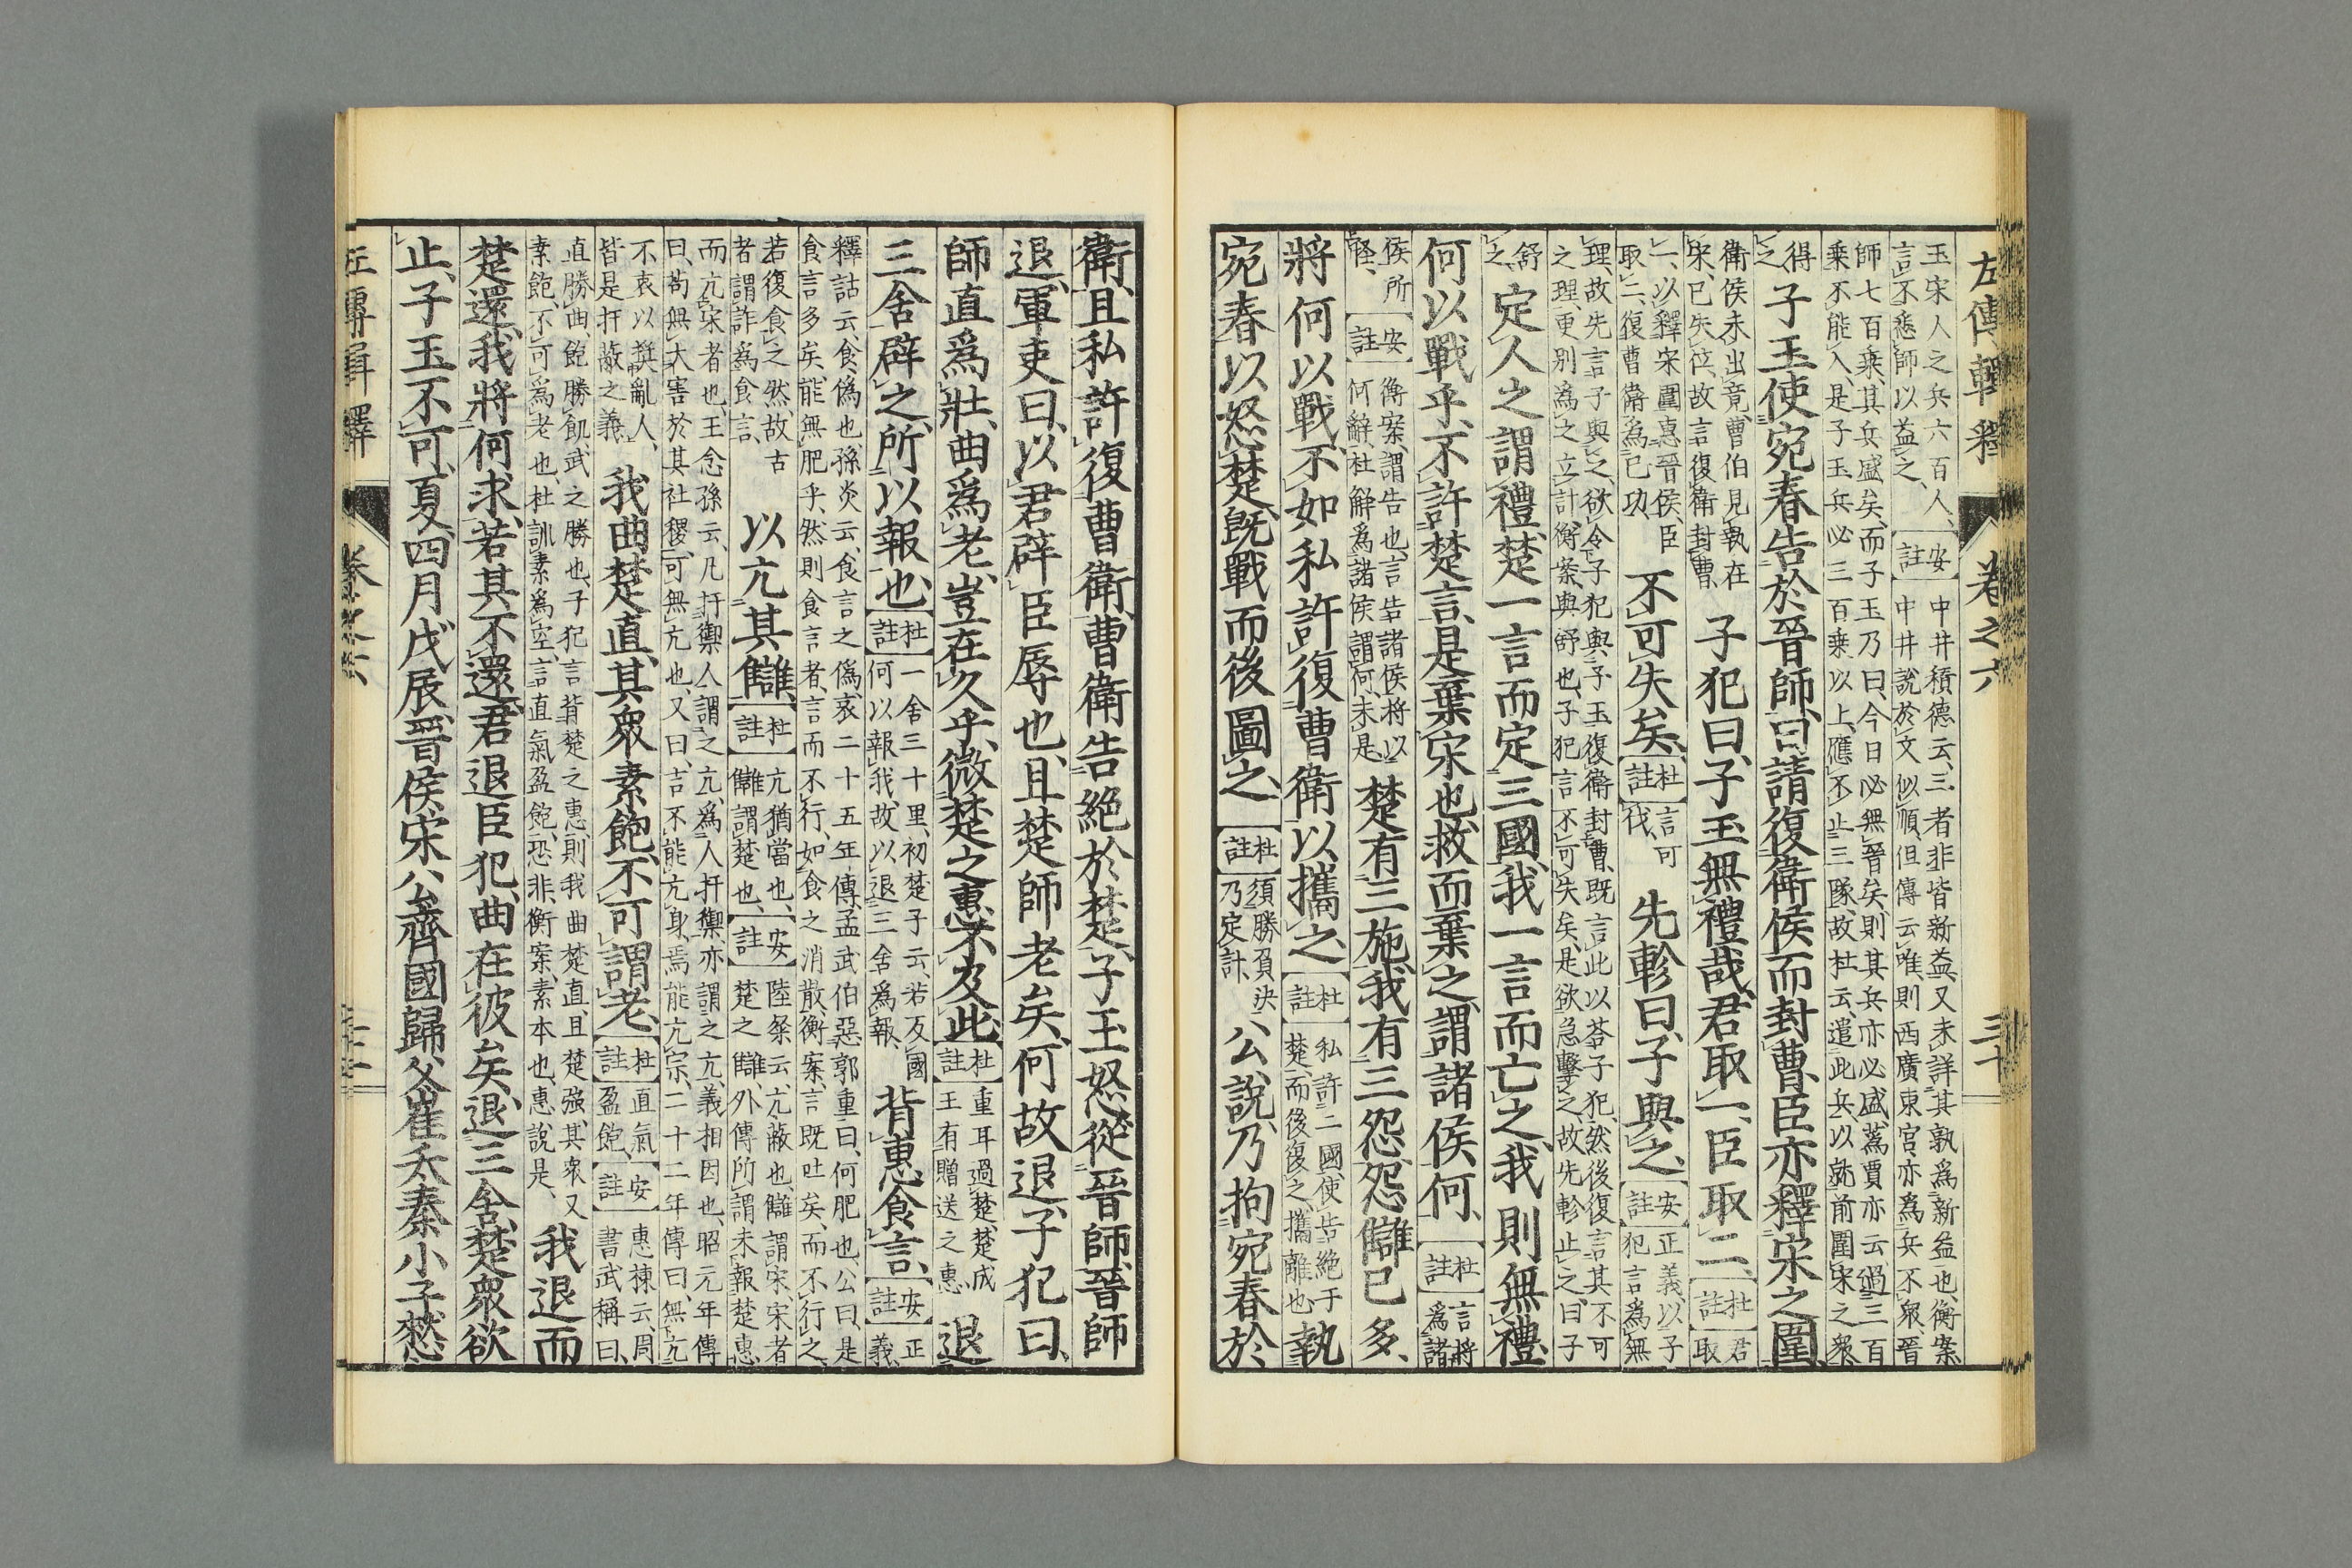 左傳輯釋 卷之六 三十
玉宋人之兵六百人、安註中井積德云、三者非皆新益、又未詳其孰爲新益也、衡案
言不悉師以益之、中井說於文似順、但傳云唯則西廣東宮亦爲兵不衆、晉
師七百乘、其兵盛矣、而子玉乃曰、今日必無晉矣、則其兵亦必盛、蒍賈亦云、過三百
乘不能入、是子玉兵必三百乘以上、應不止三隊、故杜云、遣此兵以就前圍宋之衆
得之子玉使宛春告於晉師、曰、請復衞侯而封曹、臣亦釋宋之圍、
衞侯未出竟、曹伯見執在
宋、已失位、故言復衞封曹、
子犯曰、子玉無禮哉、君取一、臣取二、杜註君取
一、以釋宋圍惠晉侯、臣
取二、復曹衞爲己功、
不可失矣、杜註言可伐、先軫曰、子與之、安註正義、以子犯言爲無
理、故先言子與之、欲令子犯與子玉復衞封曹、既言此以荅子犯、然後復言其不可
之理、更別爲之立計、衡案、與舒也、子犯言不可失矣、是欲急擊之、故先軫止之曰子
舒之、定人之謂禮、楚一言而定三國、我一言而亡之、我則無禮、
何以戰乎、不許楚言、是棄宋也、救而棄之、謂諸侯何、杜註言將爲諸
侯所怪、安註衡案、謂告也、言告諸侯将以何辭、杜解爲諸侯謂何、未是、楚有三施、我有三怨、怨讎已多、
將何以戰、不如私許復曹衞以攜之、杜註私許二國、使告絕于楚、而後復之、攜離也、執
宛春以怒楚、既戰而後圖之、杜註須勝負決乃定計、公說、乃拘宛春於
衞、且私許復曹衞、曹衞告絕於楚、子玉怒、從晉師、晉師
退、軍吏曰、以君辟臣、辱也、且楚師老矣、何故退、子犯曰、
師直爲壯、曲爲老、豈在久乎、微楚之惠不及此、杜註重耳過楚、楚成王有贈送之惠、退
三舍辟之、所以報也、杜註一舍三十里、初楚子云、若反國何以報我、故以退三舍爲報、背惠食言、安註正義、
釋詁云、食僞也、孫炎云、食言之僞、哀二十五年傳、孟武伯惡郭重曰、何肥也、公曰、是
食言多矣、能無肥乎、然則食言者、言而不行、如食之消散、衡案、言既吐矣、而不行之、
若復食之然、故古
者謂詐爲食言、
以亢其讎、杜註亢猶當也、讎謂楚也、安註陸粲云、亢蔽也、讎謂宋、宋者楚之讎、外傳所謂未報楚惠
而亢宋者也、王念孫云、凡扞禦人謂之亢、爲人扞禦、亦謂之亢、義相因也、昭元年傳
曰、苟無大害於其社稷、可無亢也、又曰、吉不能亢身、焉能亢宗、二十二年傳曰、無亢
不衷以奬亂人、
皆是扞蔽之義、
我曲楚直、其衆素飽、不可謂老、杜註直氣盈飽、安註惠棟云、周書武稱曰、
直勝曲、飽勝飢、武之勝也、子犯言背楚之惠、則我曲楚直、且楚强、其衆又
素飽、不可爲老也、杜訓素爲空、言直氣盈飽、恐非、衡案、素本也、惠說是、
我退而
楚還、我將何求、若其不還、君退臣犯、曲在彼矣、退三舍、楚衆欲
止、子玉不可、夏、四月、戊辰、晉侯、宋公、齊國歸父、崔夭、秦小子憖
左傳輯釋 卷之六